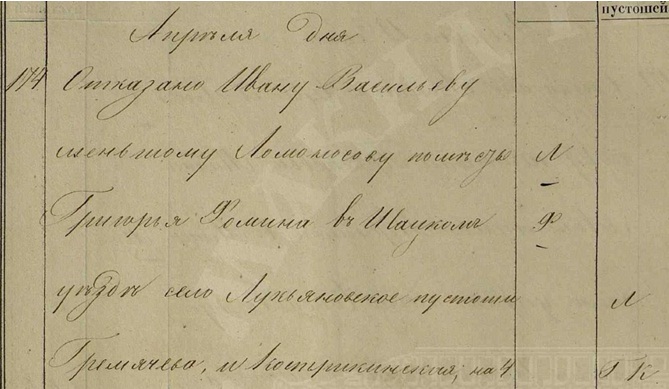 пустошей
Апрѣля дня
174 Отказано Ивану Васильеву
меньшому Ломоносову помѣстье Л
Григорья Фомина въ Шацкомъ Ф
уѣздѣ село Лукьяновское пустоши Л
Гремячево, и Костр​икинская, на 4 Г К